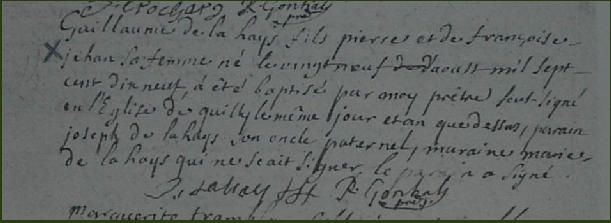 Guillaume de la hays fils pierre et de françoise
jehan sa femme né le vingt neuf d'aoust mil sept
cent dix neuf, a été baptisé par moy prêtre sous signé
en l'Eglise de quilly le même jour et an que dessus, parain
joseph de la hays son oncle paternel, maraine marie
de la hays qui ne scait signer, le parain a signé.
P. Gonhals
prêtre
Marguerite